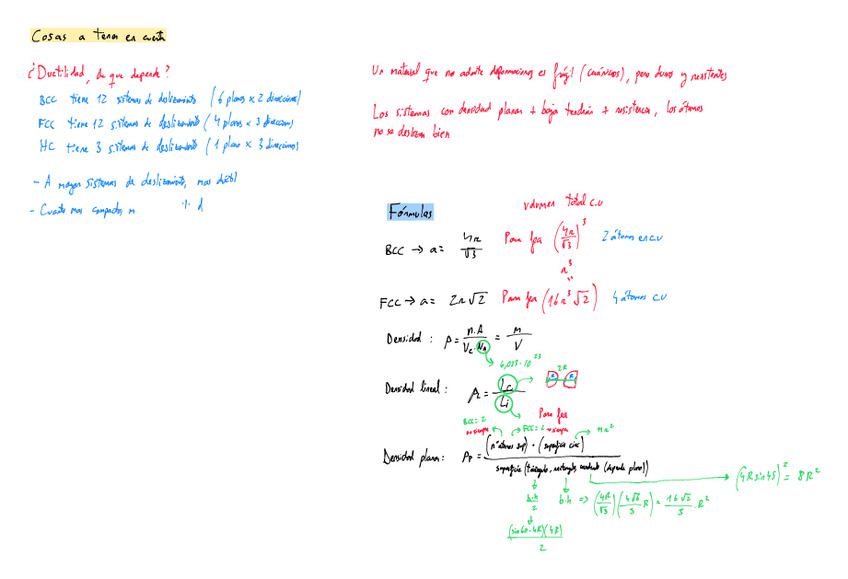 Cosas a tener en cuenta
¿Ductilidad, de que depende?
BCC tiene 12 sistemas de deslizamiento (6 planos x 2 direcciones)
FCC tiene 12 sistemas de deslizamiento (4 planos x 3 direcciones)
HC tiene 3 sistemas de deslizamiento (1 plano x 3 direcciones)
- A mayor sistemas de deslizamiento, mas dúctil
- Cuanto mas compacto, m
Un material que no admite deformaciones es frágil (cerámicos), pero duros y resistentes
Los sistemas con densidad planar + baja tendrán + resistencia, los átomos
no se deslizan bien
Fórmulas
volumen total c.u
BCC → a = 4R/√3 Para fea (4R/√3)³ 2 átomos en c.u
a³
FCC → a = 2R√2 Para fea (16R³√2) 4 átomos c.u
Densidad : ρ = n.A / Vc.Na = m / V
6,023·10²³
Densidad lineal : = Lc / Li
2R
R R
Para fea
BCC = 2 FCC = 2
no siempre
πR²
Densidad planar : ρp = (nº átomos sup) · (superficie circ) / superficie (triángulo, rectángulo, cuadrado (depende plano))
b.h / 2 b.h ⇒ (4R/√3) (4√6/3 R) = 16√2/3 · R²
(4R sin 45)² = 8R²
(sin 60·4R)(4R) / 2